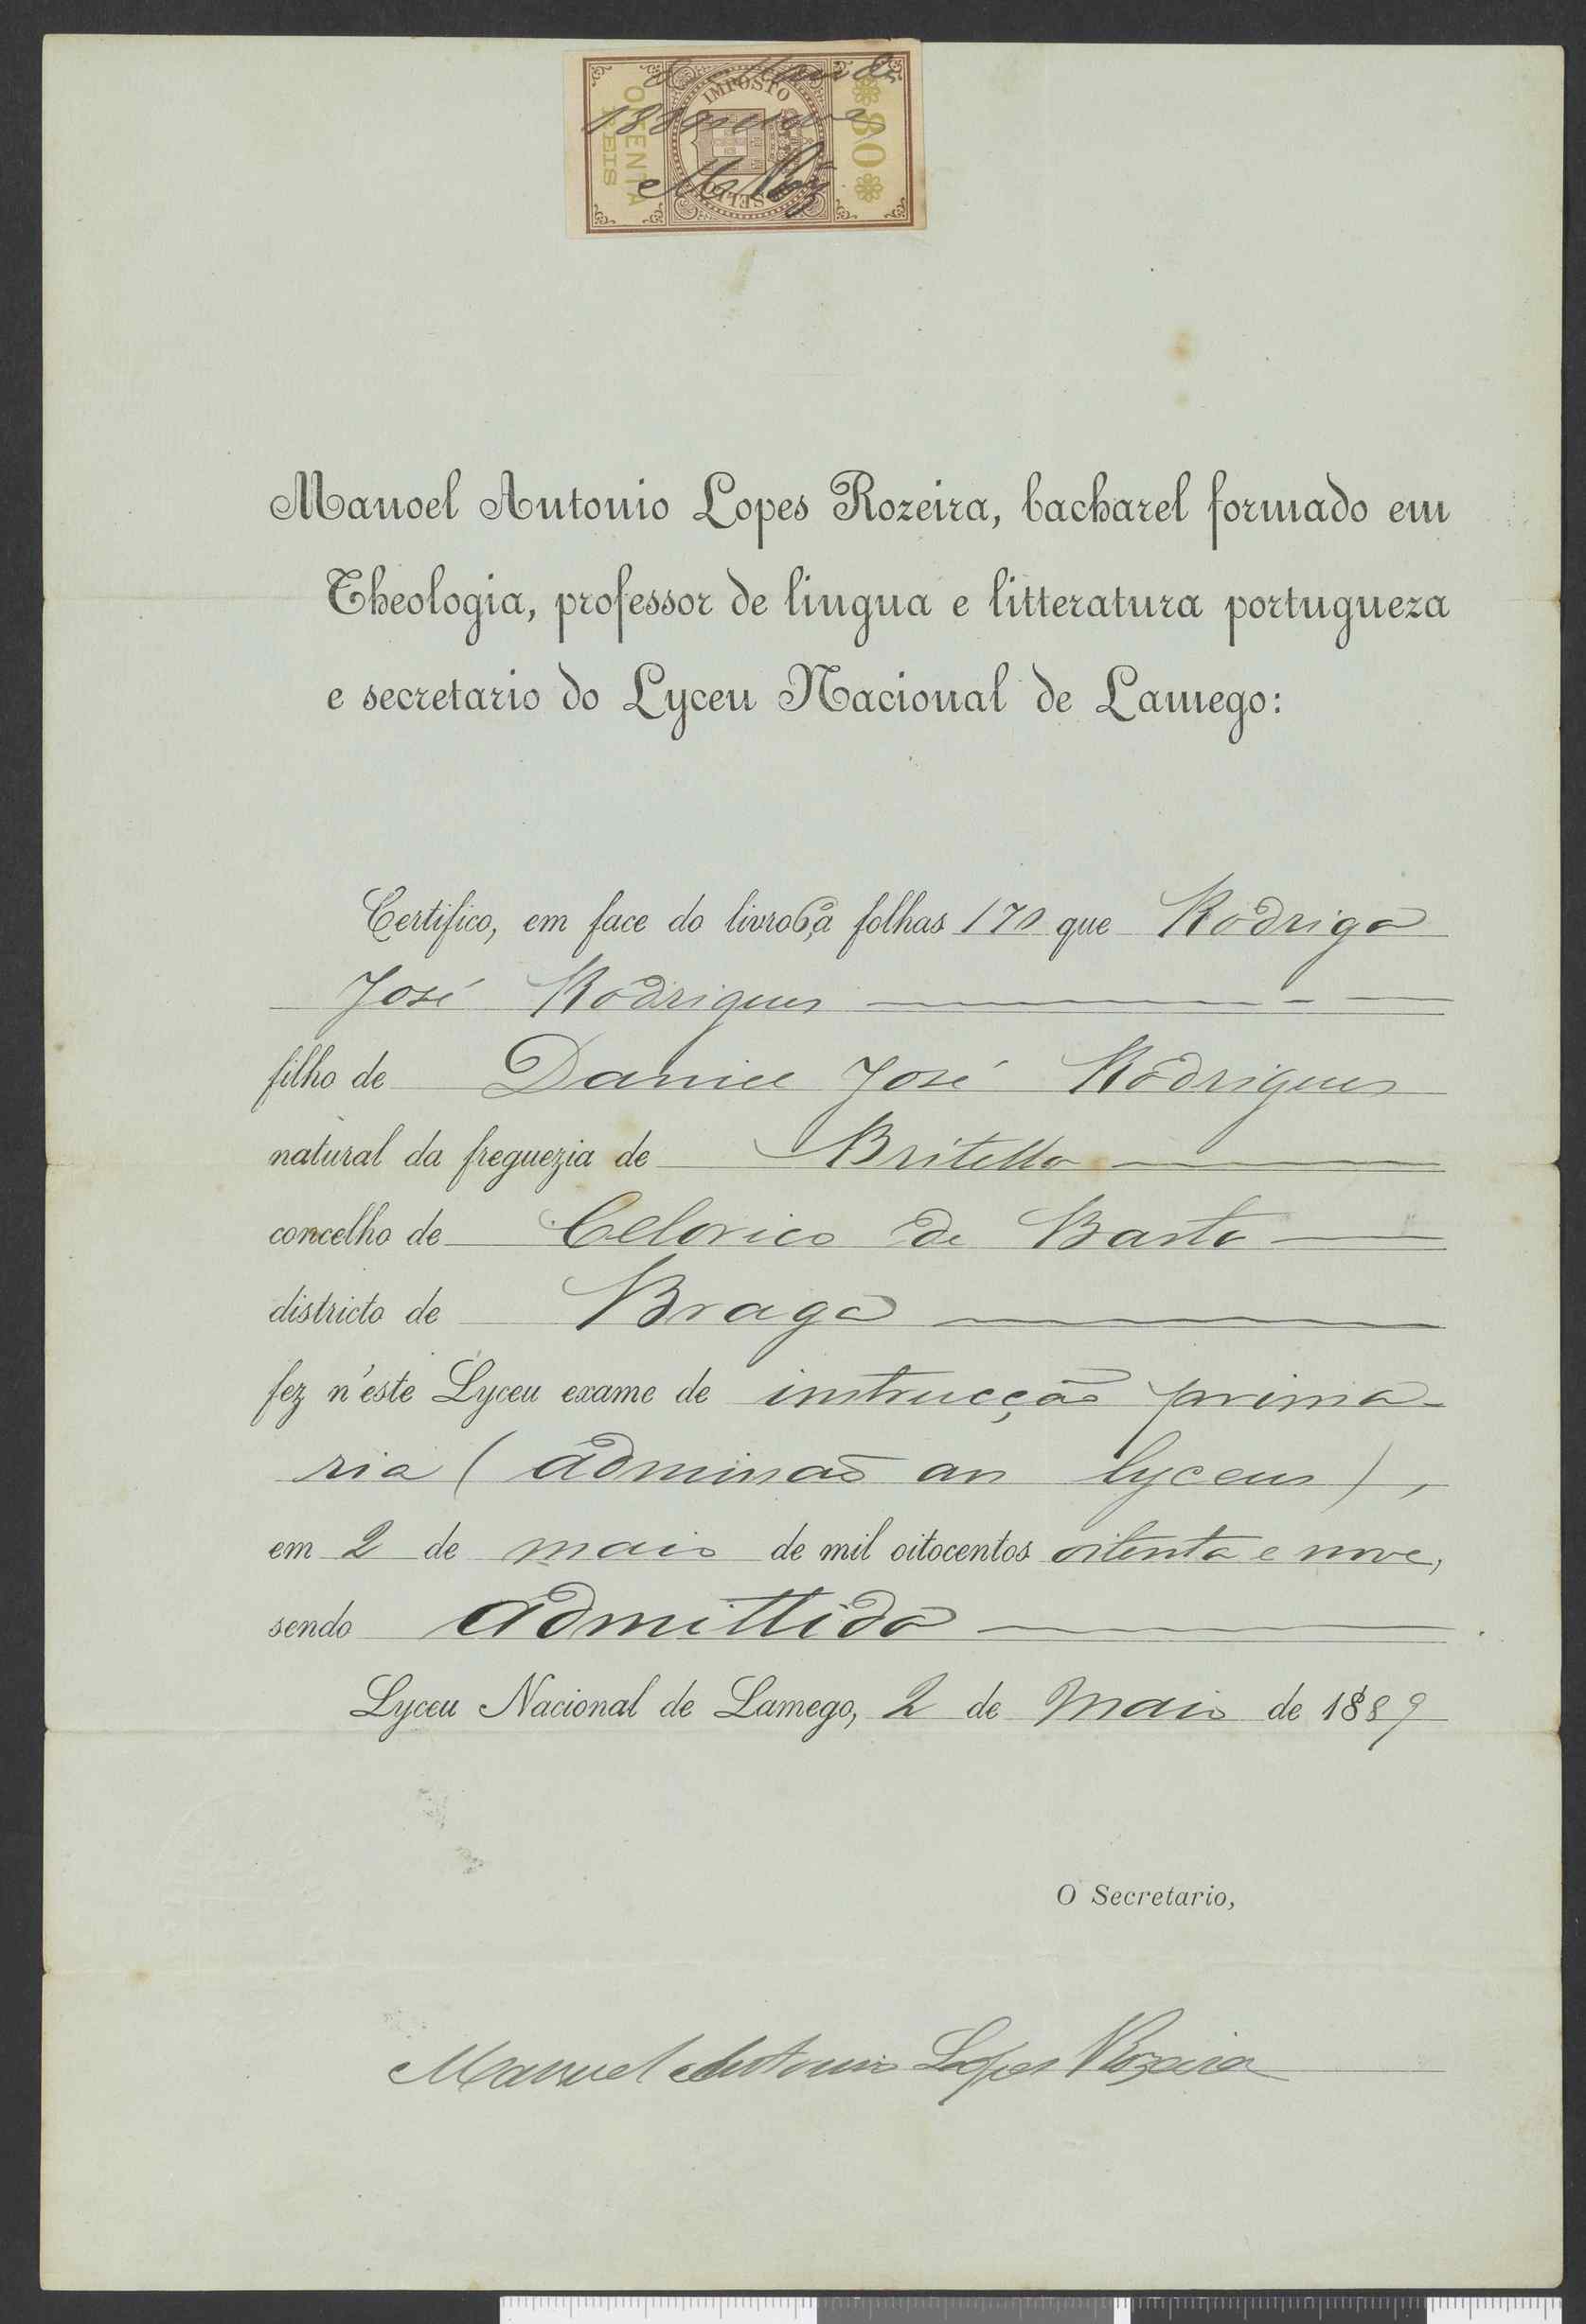 IMPOSTO
SELLO
OITENTA
REIS
80
Manoel Antonio Lopes Rozeira, bacharel formado em
Theologia, professor de lingua e litteratura portugueza
e secretario do Lyceu Nacional de Lamego:
Certifico, em face do livro 6, a folhas 170 que Rodrigo
José Rodrigues
filho de Daniel José Rodrigues
natural da freguezia de Britello
concelho de Celorico de Basto
districto de Braga
fez n'este Lyceu exame de instrucção prima-
ria (admissão aos lyceus),
em 2 de maio de mil oitocentos oitenta e nove,
sendo admittido
Lyceu Nacional de Lamego, 2 de Maio de 1889
O Secretario,
Manuel Antonio Lopes Rozeira